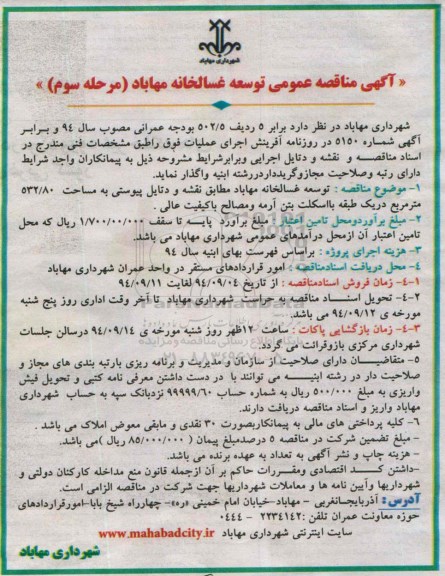 شهرداری مهاباد
« آگهی مناقصه عمومی توسعه غسالخانه مهاباد (مرحله سوم) »
شهرداری مهاباد در نظر دارد برابر ۵ ردیف ۵۰۲/۵ بودجه عمرانی مصوب سال ۹۴ و برابر
آگهی شماره ۵۱۵۰ در روزنامه آفرینش اجرای عملیات فوق راطبق مشخصات فنی مندرج در
اسناد مناقصه و نقشه و دتایل اجرایی وبرابرشرایط مشروحه ذیل به پیمانکاران واجد شرایط
دارای رتبه وصلاحیت مجازوگریددار دررشته ابنیه واگذار نماید.
۱-موضوع مناقصه : توسعه غسالخانه مهاباد مطابق نقشه و دتایل پیوستی به مساحت ۵۳۲/۸۰
مترمربع دریک طبقه بااسکلت بتن آرمه ومصالح باکیفیت عالی .
۲-مبلغ برآوردومحل تامین اعتبار : مبلغ برآورد پایه تا سقف ۱/۷۰۰/۰۰/۰۰۰ ریال که محل
تامین اعتبار آن ازمحل درآمدهای عمومی شهرداری مهاباد می باشد.
۳- هزینه اجرای پروژه : براساس فهرست بهای ابنیه سال ۹۴
۴- محل دریافت اسنادمناقصه : امور قراردادهای مستقر در واحد عمران شهرداری مهاباد
۴-۱- زمان فروش اسنادمناقصه : از تاریخ ۹۴/۰۹/۰۴ لغایت ۹۴/۰۹/۱۱
۴-۲- تحویل اسناد مناقصه به حراست شهرداری مهاباد تا آخر وقت اداری روز پنج شنبه
مورخه ی ۹۴/۰۹/۱۲ می باشد.
۴-۳- زمان بازگشایی پاکات : ساعت ۱۲ظهر روز شنبه مورخه ی ۹۴/۰۹/۱۴ درسالن جلسات
شهرداری مرکزی بازوقرائت می گردد.
۵- متقاضیان دارای صلاحیت از سازمان و مدیریت و برنامه ریزی بارتبه بندی های مجاز و
صلاحیت دار در رشته ابنیه می توانند با در دست داشتن معرفی نامه کتبی و تحویل فیش
واریزی به مبلغ ۵۰۰/۰۰۰ ریال به شماره حساب ۹۹۹۹۹/۶۰ نزدبانک سپه به حساب شهرداری
مهاباد واریز و اسناد مناقصه دریافت دارند.
۶- کلیه پرداختی های مالی به پیمانکاربصورت ۳۰ نقدی و مابقی معوض املاک می باشد .
- مبلغ تضمین شرکت در مناقصه ۵ درصدمبلغ پیمان ( ۸۵/۰۰۰/۰۰۰ ریال )می باشد.
- هزینه چاپ و نشر آگهی به تعداد به عهده برنده می باشد.
-داشتن کد اقتصادی ومقررات حاکم بر آن ازجمله قانون منع مداخله کارکنان دولتی و
شهرداریها وآیین نامه ها و معاملات شهرداریها جهت شرکت در مناقصه الزامی است.
آدرس : آذربایجانغربی - مهاباد-خیابان امام خمینی «ره»- چهارراه شیخ بابا-امورقراردادهای
حوزه معاونت عمران تلفن :۲۲۳۴۱۴۲ - ۰۴۴۴
سایت اینترنتی شهرداری مهاباد www.mahabadcity.ir
شهرداری مهاباد